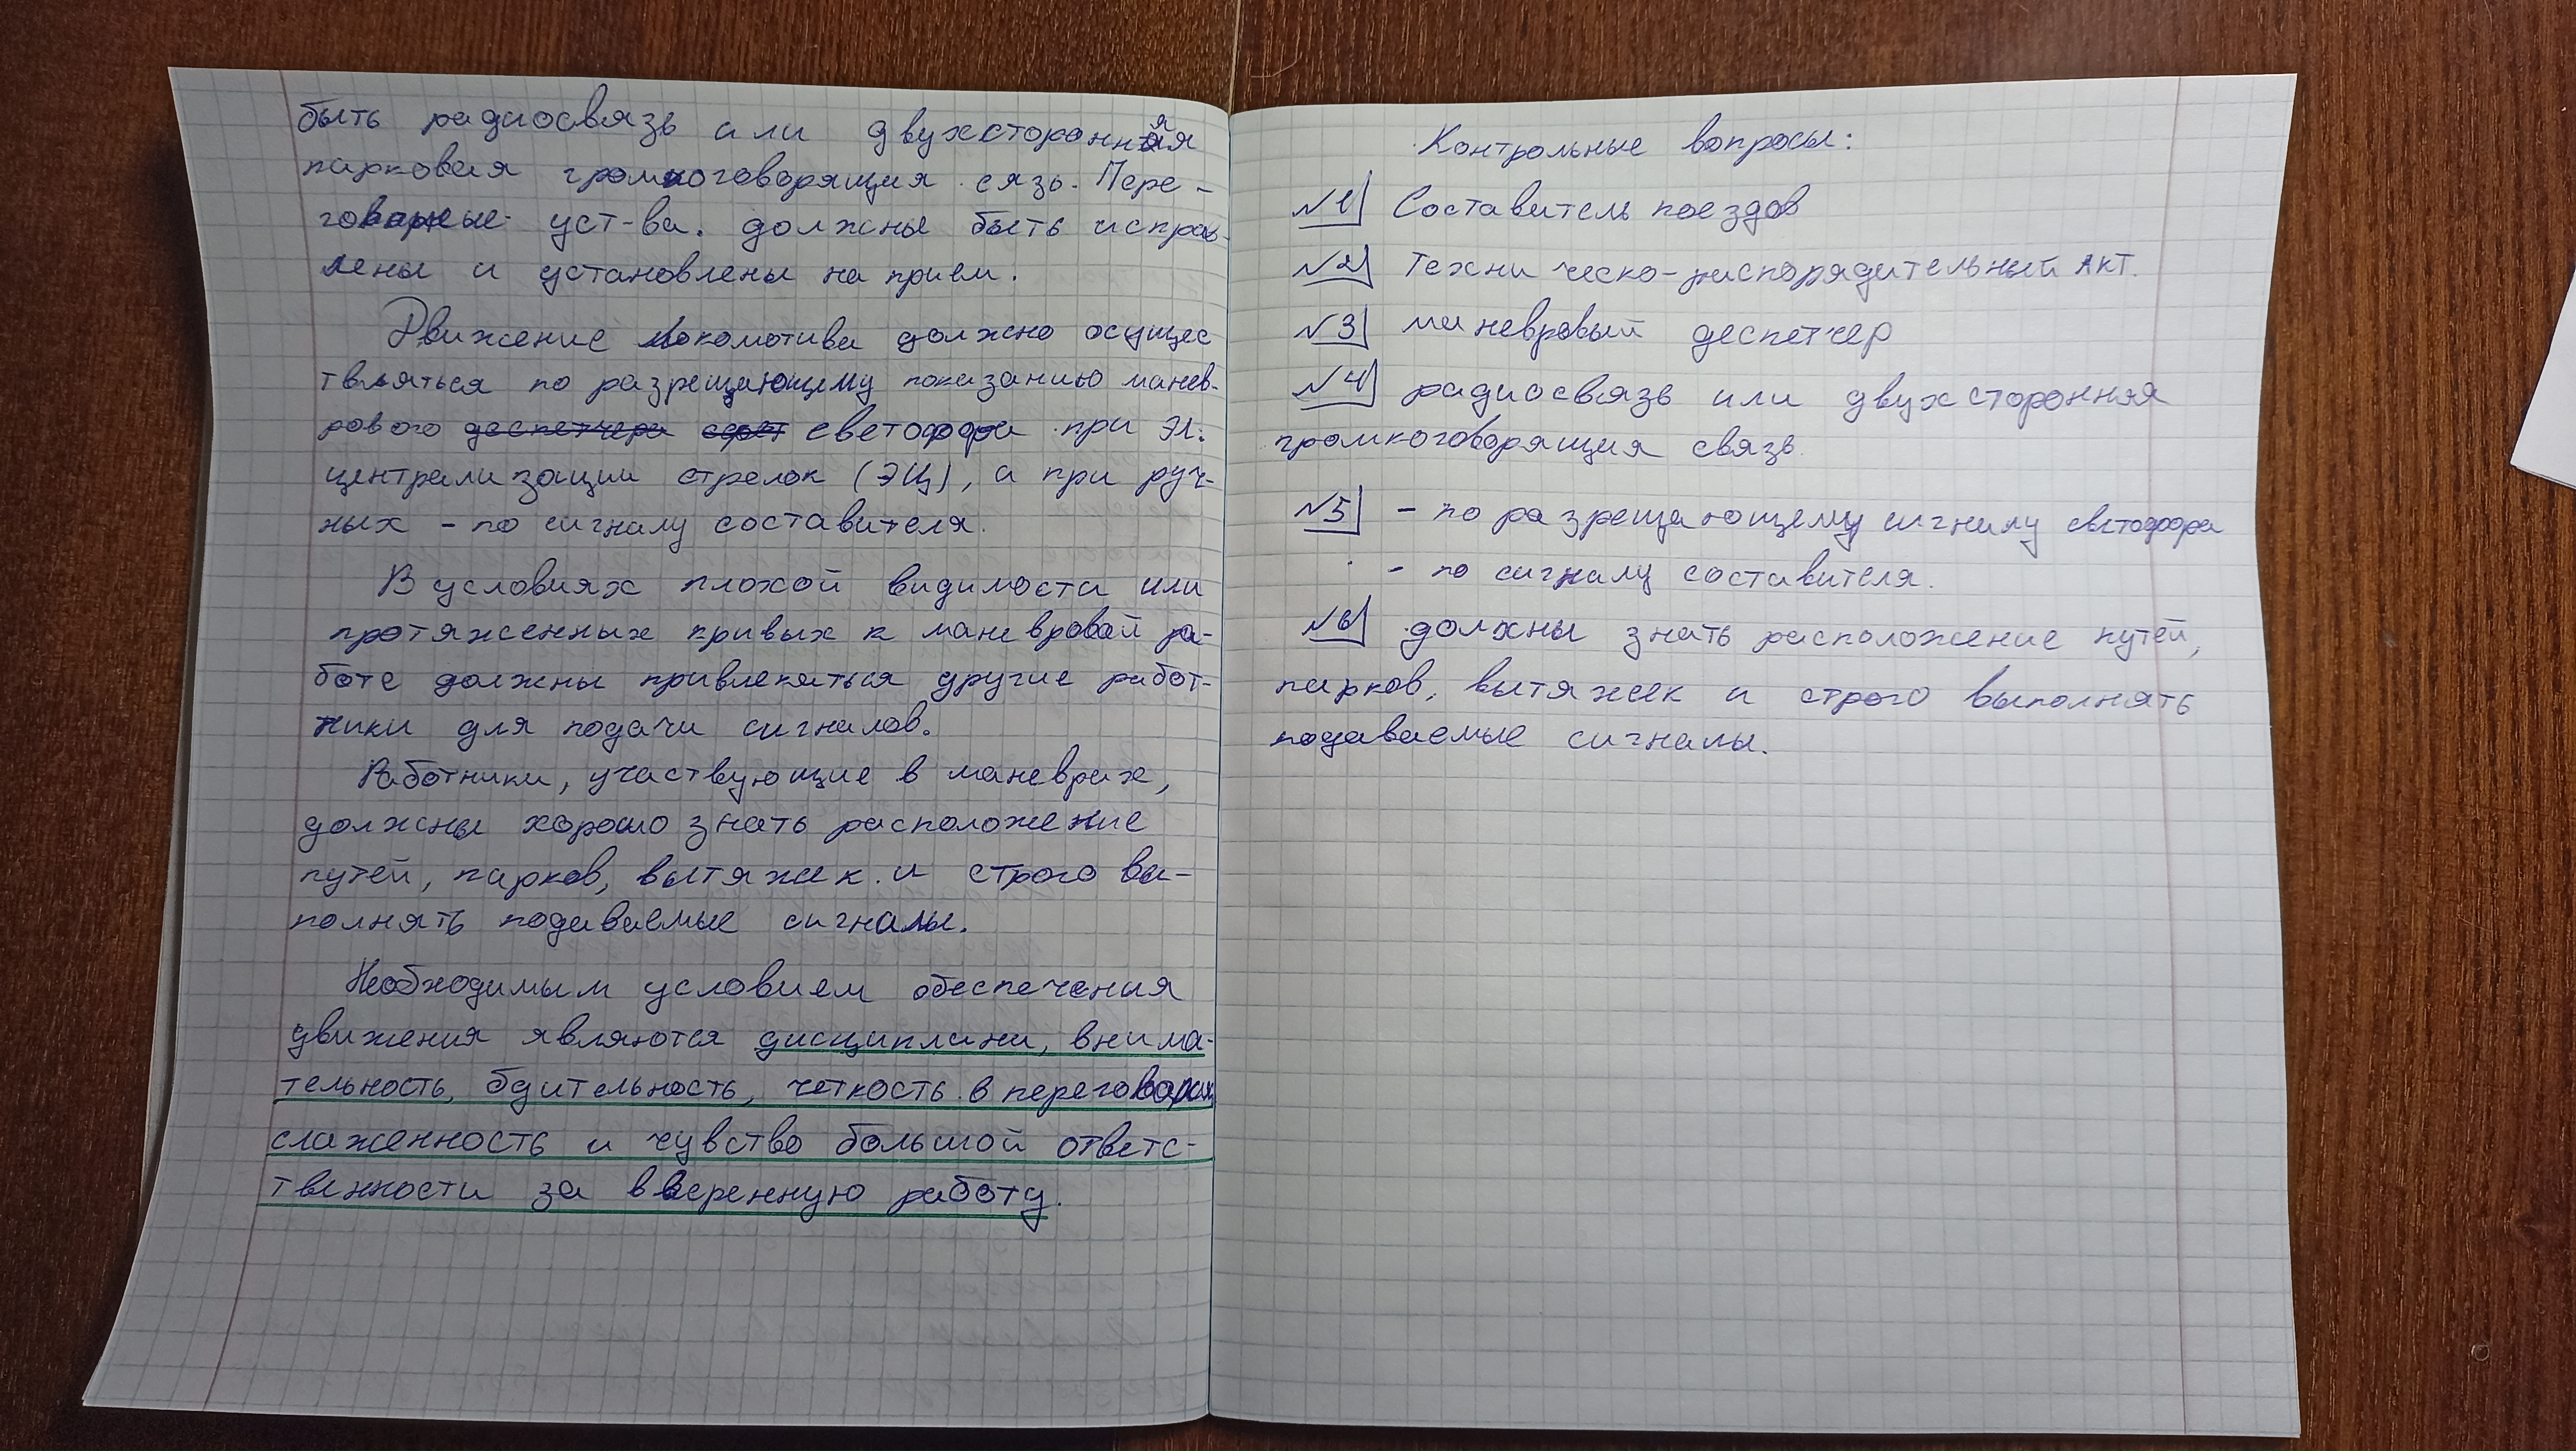 быть радиосвязь или двухсторонняя
парковая громкоговорящия сязь. Пере-
говорные уст-ва. должны быть исправ-
лены и установлены на прием.
Движение локомотива должно осущес
твляться по разрещающему показанию манев-
рового деспетчера свет светофора при Эл.
централизации стрелок (ЭЦ), а при руч-
ных - по сигналу составителя.
В условиях плохой видимости или
протяженных кривых к маневровой ра-
боте должны привлекаться другие работ-
ники для подачи сигналов.
Работники, участвующие в маневрах,
должны хорошо знать расположение
путей, парков, вытяжек и строго вы-
полнять подаваемые сигналы.
Необходимым условием обеспечения
движения являются дисциплина, внима-
тельность, бдительность, четкость в переговорах,
слаженность и чувство большой ответс-
твенности за вверенную работу.
Контрольные вопросы:
№1 Составитель поездов
№2 Техни ческо-распорядительный АКТ.
№3 маневровый деспетчер
№4 радиосвязь или двухсторонняя
громкоговорящия связь.
№5 - по разрещающему сигналу светофора
- по сигналу составителя.
№6 должны знать расположение путей,
парков, вытяжек и строго выполнять
подаваемые сигналы.